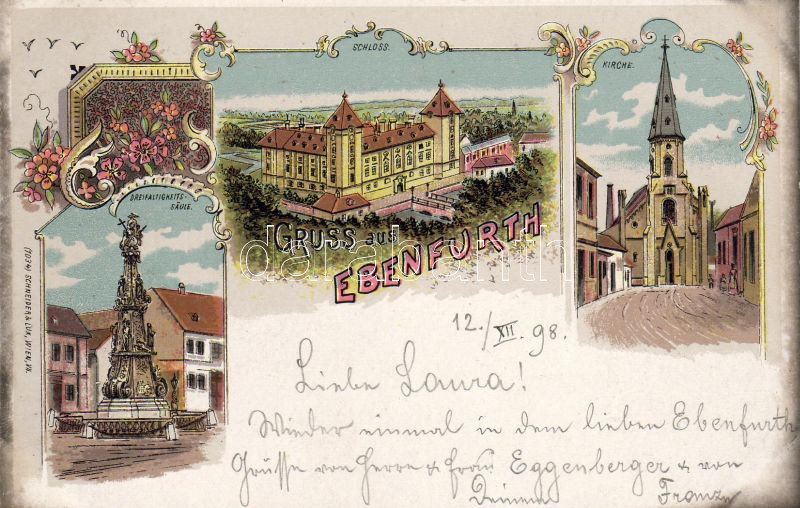 SCHLOSS.
KIRCHE.
DREIFALTIGKEITS-
SÄULE.
GRUSS aus
EBENFURTH
darabanth
(7034) SCHNEIDER & LUX, WIEN, VII.
12./XII. 98.
Liebe Laura!
Wieder einmal in dem lieben Ebenfurth,
Grüsse von Herrn & Frau Eggenberger & von
Deinem Franz